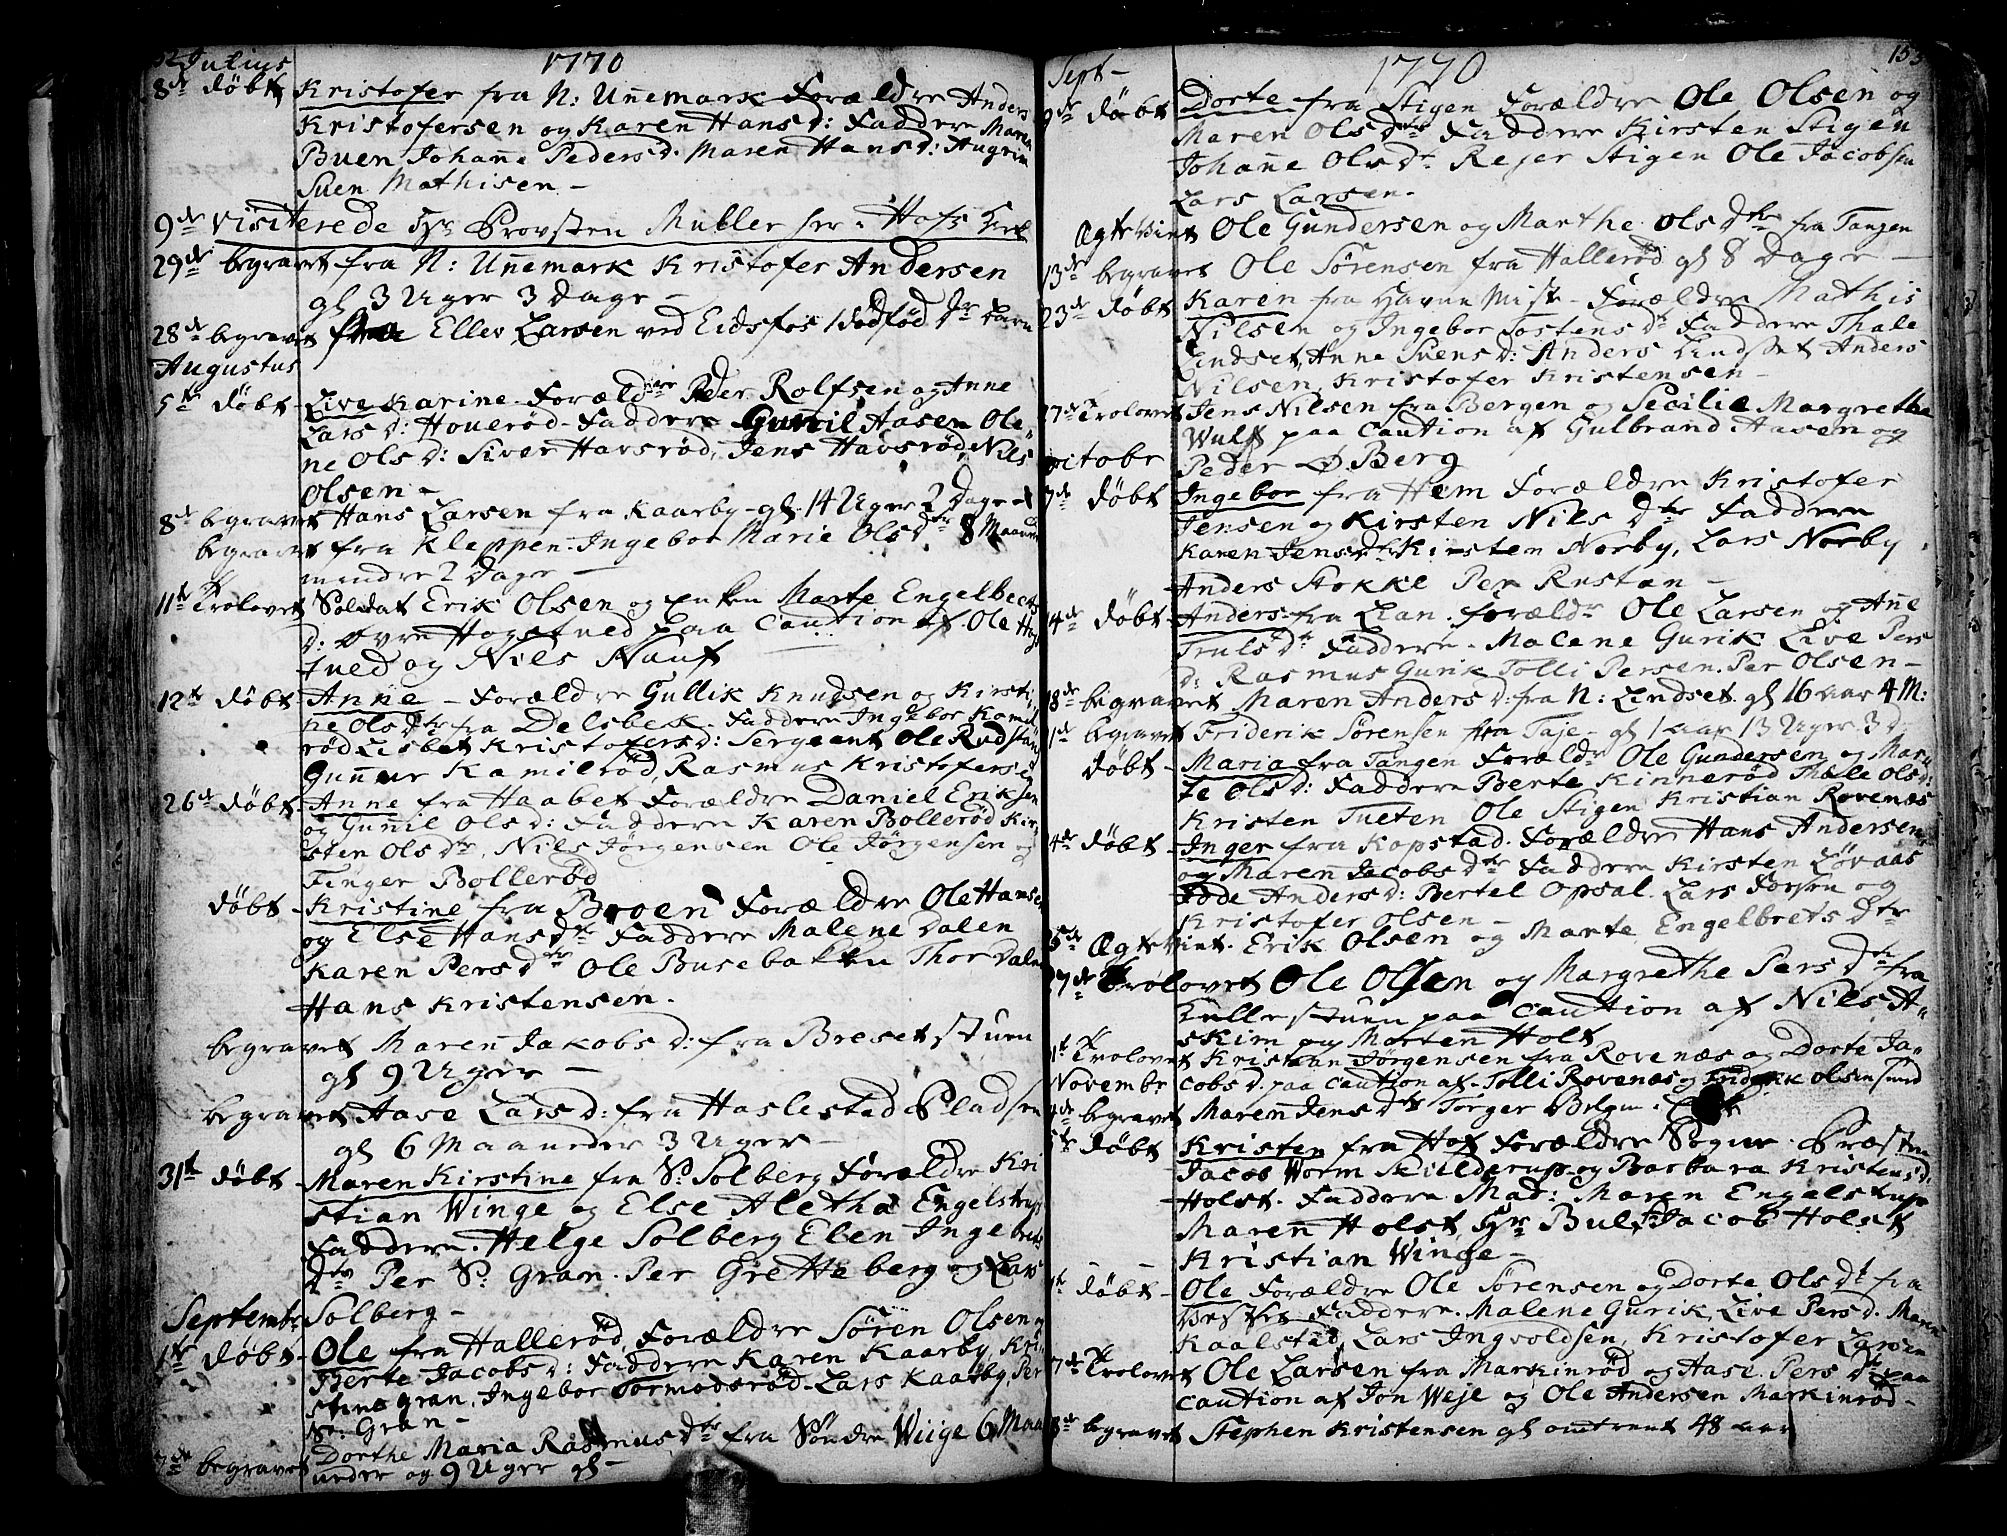 Julius 1770
8de døbt Kristofer fra N: Unnemark Forældre Anders
Kristofersen og Karen Hans d: Faddere Maren
Buen Johanne Peders d. Maren Hans d: Augrim
Suen Mathisen –
9de visiterede Hr Provsten Muller her i Hofs
29de begravet fra N: Unnemark Kristofer Andersen
gl 3 Uger 3 Dage –
28de begravet Eller Larsen ved Eidsfos 1 dødfød Barn
Augustus
5te døbt – Live Karine Forældre Peder Rolfsen og Anne
Lars d: Houerød – Faddere Gunnil Aasen Ole
ne Ols d: Siver Havsrød, Jens Havsrød, Nils
Olsen –
8de begravet Hans Larsen fra Kaarby – gl. 14 Uger 2 Dage
begravet fra Kleppen Ingebor Marie Ols Dtr 8 Maaneder
mindre 2 Dage –
11te Trolovet Soldat Erik Olsen og Enken Marte Engelbrects
d: øvre Hogstued paa Caution af Ole Hog
stued og Nils Nauf
12te døbt – Anne – Forældre Gullik Knudsen og Kirsti
ne Ols Dtr fra Delsbek. Faddere Ingebor Kamil
rød Lisbet Kristofers d: Sergeant Ole Rudstan
Gunnur Kamilrød, Rasmus Kristofersen
26de døbt – Anne fra Haabet Forældre Daniel Eriksen
og Gunnil Ols d: Faddere Karen Bollerød Kir
sten Ols Dtr, Nils Jørgensen Ole Jørgensen og
Finger Bollerød
døbt – Kristine fra Broen Forældre Ole Hansen
og Else Hans Dtr Faddere Malene Dalen
Karen Pers Dtr Ole Busebakken Thor Dalen
Hans Kristensen.
begravet Maren Jakobs d: fra Bresetstuen
gl 9 Uger –
begravet Aase Lars d: fra Haslestad Pladsen
gl 6 Maaneder 3 Uger –
31te døbt – Maren Kirstine fra S: Solberg Forældre Kri
stian Winge og Else Aletha Engelstrup
Faddere. Helge Solberg Elen Ingebrets
Dtr Per S: Gran. Per Gretteberg og Lars
Septembr. Solberg –
1te døbt – Ole fra Hallerød, Forældre Sören Olsen og
Berte Jacobs d: Faddere Karen Kaarby, Kri
stine gran, Ingebor Tormodsrød – Lars Kaarby, Per
Sr: Gran –
7de begravet Dorthe Maria Rasmus Dtr fra Søndre Wiige 6 Maa
neder og 9 Uger gl –
Sept – 1770 153
9de døbt Dorte fra Stigen Forældre Ole Olsen og
Maren Ols Dtr Faddere Kirsten Stigen
Johanne Ols Dtr Rejer Stigen Ole Jacobsen
Lars Larsen.
Ægteviet Ole Gundersen og Marthe Ols Dtr fra Tangen
13de begravet Ole Sörensen fra Hallerød gl 8 Dage –
23de døbt Karen fra – Forældre Mathis
Nilsen og Ingebor Tostens Dtr Faddere Thale
Lindset, Anne Svens d: Anders Lindset Anders
Nilsen, Kristofer Kristensen –
27de Trolovet Jens Nilsen fra Bergen og Secilie Margrethe
Wulf paa Caution af Gulbrand Aasen og
Octobr Peder Ø. Berg
7de døbt Ingebor fra Hem Forældre Kristofer
Jensen og Kirsten Nils Dtr Faddere
Karen Jens Dtr Kirsten Norby, Lars Norby
Anders Stokke Per Rustan –
14de døbt – Anders fra Lian. Forældr Ole Larsen og Anne
Truls Dtr Faddere. Malene Gurik Live Pers
d: Rasmus Gurik Tolli Persen. Per Olsen –
18de begravet Maren Anders d: fra N: Lindset. gl 16 aar 4 M:
begravet Friderik Sörensen fra Taje – gl 1 aar 13 Uger 3 d:
døbt – Maria fra Tangen Forældr Ole Gundersen og Mar
te Ols d: Faddere Berte Kinnerød Thale Ols d:
Kristen Tueten Ole Stigen Kristian Rovenæs
4de døbt – Inger fra Kopstad. Forældre Hans Andersen
og Maren Jacobs Dtr Faddere Kirsten Løvaas
Anders d: Bertel Opsal. Lars Forsen og
Kristofer Olsen –
Ægteviet. Erik Olsen og Marte Engelbrets Dtr
27de Trolovet Ole Olsen og Margrethe Pers Dtr fra
Hullestuen paa Caution af Nils A
skim og Morten Holt
Trolovet Kristian Jörgensen fra Rovenæs og Dorte Ja-
Novembr cobs d. paa Caution af Tolli Rovenæs og Friderik Olsen
begravet Maren Jens Dtr Torger
døbt – Kristen fra Hof Forældre Sogne Præsten
Jacob Worm Skilderup og Barbara Kristens d.
Holst. Faddere Mad: Maren Engelstrup
Maren Holst, Hr Bull, Jacob Holst
Kristian Winge –
døbt – Ole Forældre Ole Sörensen og Dorte Ols Dtr fra
Faddere. Malene Gurik, Live Pers d. Maren
Kaalstad, Lars Ingvoldsen, Kristofer Larsen
Trolovet Ole Larsen fra Markinrød og Aase Pers Dtr paa
caution af Jon Weje og Ole Andersen Markinrød –
begravet Stephen Kristensen gl omtrent 48 aar